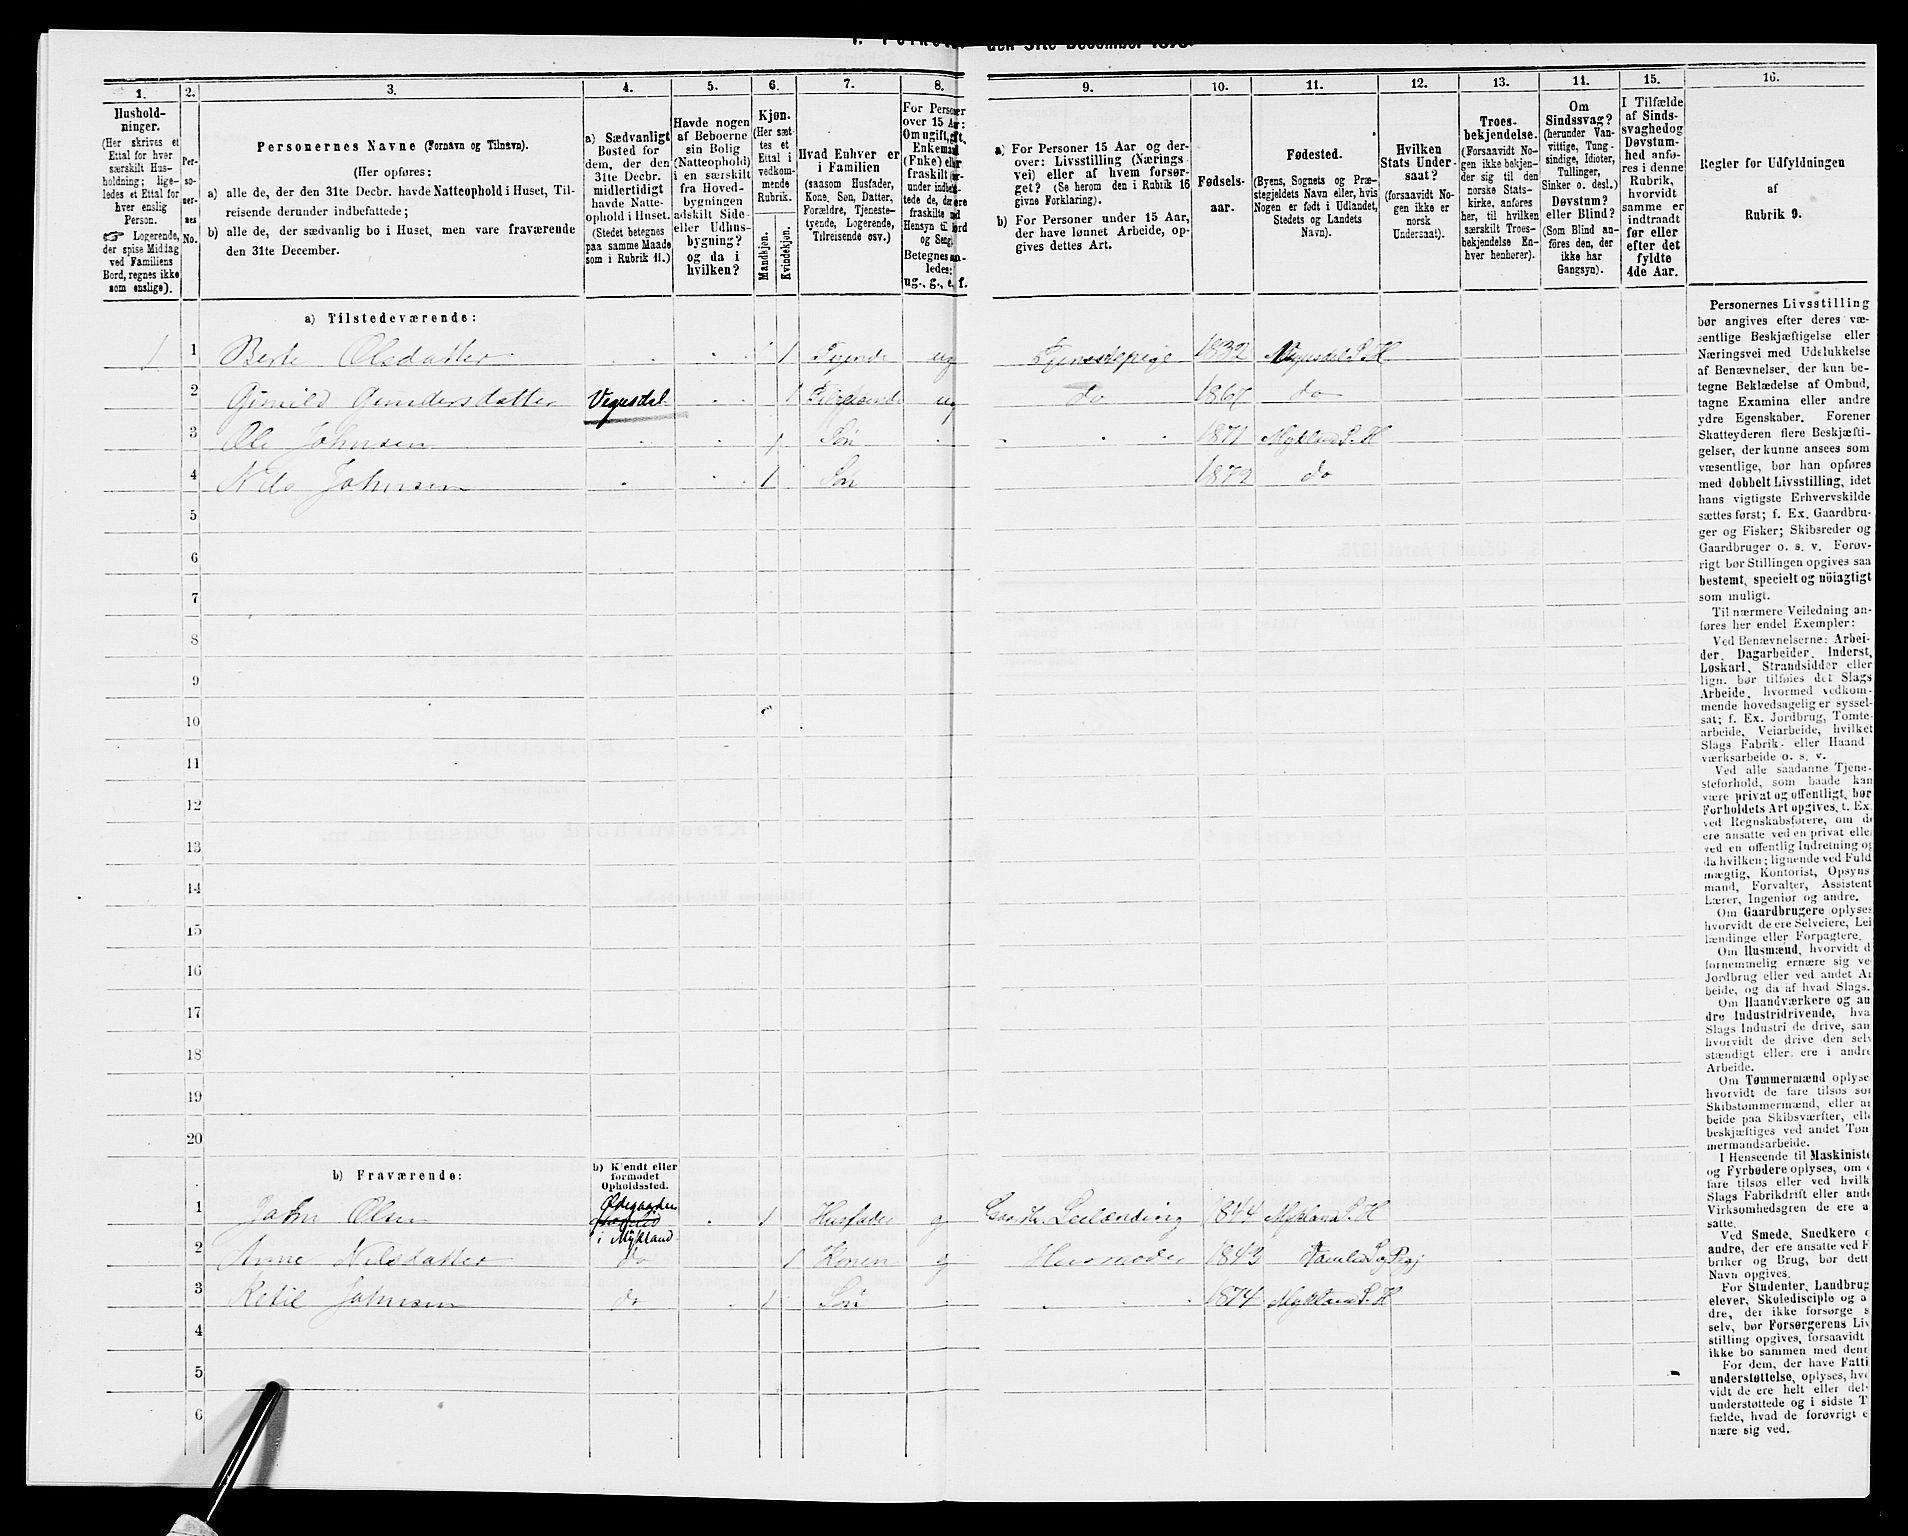 den 31te December 1875.
1. 2. 3. 4. 5. 6. 7. 8. 9. 10. 11. 12. 13. 14. 15. 16.
Hushold-
ninger.
(Her skrives et
Ettal for hver
særskilt Hus-
holdning; lige-
ledes et Ettal for
hver enslig
Person.
☞ Logerende,
der spise Middag
ved Familiens
Bord, regnes ikke
som enslige).
Per-
so-
ner-
nes
No.
Personernes Navne (Fornavn og Tilnavn).
(Her opføres:
a) alle de, der den 31te Decbr. havde Natteophold i Huset, Til-
reisende derunder indbefattede;
b) alle de, der sædvanlig bo i Huset, men vare fraværende
den 31te December.
a) Sædvanligt
Bosted for
dem, der den
31te Decbr.
midlertidigt
havde Natte-
ophold i Huset.
(Stedet betegnes
paa samme Maade
som i Rubrik 11.)
Havde nogen
af Beboerne
sin Bolig
(Natteophold)
i en særskilt
fra Hoved-
bygningen
adskilt Side-
eller Udhus-
bygning?
og da i
hvilken?
Kjøn.
(Her sæt-
tes et
Ettal i
vedkom-
mende
Rubrik.
Mandkjøn.
Kvindekjøn.
Hvad Enhver er
i Familien
(saasom Husfader,
Kone, Søn, Datter,
Forældre, Tjeneste-
tyende, Logerende,
Tilreisende osv.)
For Personer
over 15 Aar:
Om ugift, gift,
Enkemand
(Enke) eller
fraskilt
Betegnes
ledes:
ug., g., e. f.
a) For Personer 15 Aar og der-
over: Livsstilling (Nærings
vei) eller af hvem forsør-
get? (Se herom den i Rubrik 16
givne Forklaring).
b) For Personer under 15 Aar,
der have lønnet Arbeide, op-
gives dettes Art.
Fødsels-
aar.
Fødested.
(Byens, Sognets og Præ-
stegjeldets Navn eller, hvis
Nogen er født i Udlandet,
Stedets og Landets
Navn).
Hvilken
Stats Under-
saat?
(forsaavidt No-
gen ikke er
norsk
Undersaat).
Troes-
bekjendelse.
(Forsaavidt No-
gen ikke bekjen-
der sig til den
norske Stats-
kirke, anføres
her, til hvilken
særskilt Troes-
bekjendelse En-
hver henhører).
Om
Sindssvag?
(herunder Van-
vittige, Tung-
sindige, Idioter,
Tullinger,
Sinker o. desl.)
Døvstum?
eller Blind?
(Som Blind an-
føres den, der
ikke har
Gangsyn).
I Tilfælde
af Sinds-
svaghed og
Døvstum-
hed anfø-
res i denne
Rubrik,
hvorvidt
samme er
indtraadt
før eller
efter det
fyldte
4de Aar.
Regler for Udfyldningen
af
Rubrik 9.
a) Tilstedeværende:
1 1 Berte Olsdatter 1 Tyende ug Tjenestepige 1832 S. H
2 Gunild Gundersdatter Vegusdal 1 ug do 186 do
3 Ole Johnsen 1 Søn 1871 Mykland S. H
4 Nils Johnsen 1 Søn 1872 do
5
6
7
8
9
10
11
12
13
14
15
16
17
18
19
20
b) Fraværende:
b) Kjendt eller
formodet
Opholdssted.
1 John Olsen Ødegaarden i Mykland 1 Husfader g Leilænding 1844 Mykland S. H
2 Anne Nilsdatter do 1 Konen g Husmoder 1843
3 Ketil Johnsen do 1 Søn 1874 Mykland S. H
4
5
6
Personernes Livsstilling
bør angives efter deres væ-
sentlige Beskjæftigelse eller
Næringsvei med Udelukkelse
af Benævnelser, der kun be-
tegne Beklædelse af Ombud,
tagne Examina eller andre
ydre Egenskaber. Forener
Skatteyderen flere Beskjæfti-
gelser, der kunne ansees som
væsentlige, bør han opføres
med dobbelt Livsstilling, idet
hans vigtigste Erhvervskilde
sættes først; f. Ex. Gaardbru-
ger og Fisker; Skibsreder og
Gaardbruger o. s. v. Forøv-
rigt bør Stillingen opgives saa
bestemt, specielt og nöiagtigt
som muligt.
Til nærmere Veiledning an-
føres her endel Exempler:
Ved Benævnelserne: Arbei-
der, Dagarbeider, Inderst,
Løskarl, Strandsidder eller
lign. bør tilføies det Slags
Arbeide, hvormed vedkom-
mende hovedsagelig er syssel-
sat; f. Ex. Jordbrug, Tomte-
arbeide, Veiarbeide, hvilket
Slags Fabrik- eller Haand-
værksarbeide o. s. v.
Ved alle saadanne Tjene-
steforhold, som baade kan
være privat og offentligt, bør
Forholdets Art opgives, t. Ex.
ved Regnskabsførere, om de
ere ansatte ved en privat eller
ved en offentlig Indretning og
da hvilken; lignende ved Fuld
mægtig, Kontorist, Opsyns
mand, Forvalter, Assistent
Lærer, Ingeniør og andre.
Om Gaardbrugere oplyses
hvorvidt de ere Selveiere, Lei
lændinge eller Forpagtere.
Om Husmænd, hvorvidt d
fornemmelig ernære sig ve
Jordbrug eller ved andet Ar
beide, og da af hvad Slags.
Om Haandværkere og an
dre Industridrivende, hva
Slags Industri de drive, sam
hvorvidt de drive den selv
stændigt eller ere i andre
Arbeide.
Om Tømmermænd oplyse
hvorvidt de fare tilsøs som
Skibstømmermænd, eller ar
beide paa Skibsværfter, elle
beskjæftiges ved andet Tøm
mermandsarbeide.
I Henseende til Maskiniste
og Fyrbødere oplyses, om d
fare tilsøs eller ved hvilk
Slags Fabrikdrift eller ande
Virksomhedsgren de ere a
satte.
Ved Smede, Snedkere o
andre, der ere ansatte ved F
briker og Brug, bør dett
Navn opgives.
For Studenter, Landbrug
elever, Skoledisciple og a
dre, der ikke forsørge s
selv, bør Forsørgerens Liv
stilling opgives, forsaavidt
ikke bo sammen med denn
For dem, der have Fatti
understøttelse, oplyses, hv
vidt de ere helt eller del
understøttede og i sidste T
fælde, hvad de forøvrigt e
nære sig ved.